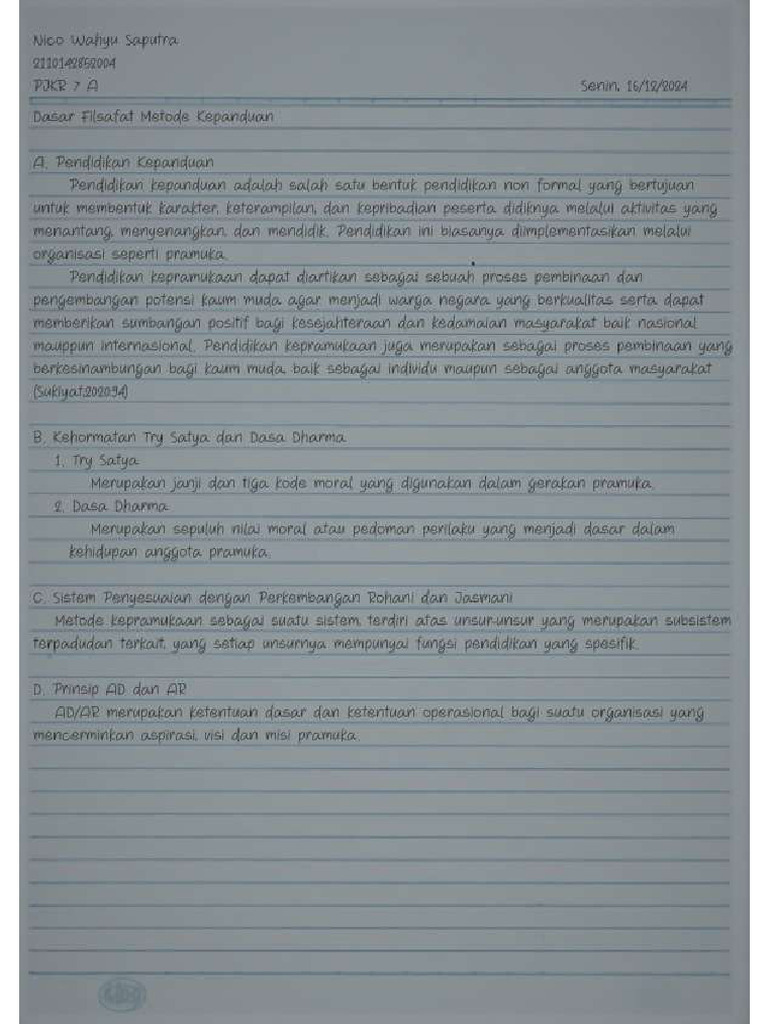 Nico Wahyu Saputra
2110142852004
PJKR 7 A
Senin, 16/12/2024
Dasar Filsafat Metode Kepanduan
A. Pendidikan Kepanduan
Pendidikan kepanduan adalah salah satu bentuk pendidikan non formal yang bertujuan
untuk membentuk karakter, keterampilan, dan kepribadian peserta didiknya melalui aktivitas yang
menantang, menyenangkan, dan mendidik. Pendidikan ini biasanya diimplementasikan melalui
organisasi seperti pramuka.
Pendidikan kepramukaan dapat diartikan sebagai sebuah proses pembinaan dan
pengembangan potensi kaum muda agar menjadi warga negara yang berkualitas serta dapat
memberikan sumbangan positif bagi kesejahteraan dan kedamaian masyarakat baik nasional
mauppun internasional. Pendidikan kepramukaan juga merupakan sebagai proses pembinaan yang
berkesinambungan bagi kaum muda, baik sebagai individu maupun sebagai anggota masyarakat
(Sukiyat,202034)
B. Kehormatan Try Satya dan Dasa Dharma
1. Try Satya
Merupakan janji dan tiga kode moral yang digunakan dalam gerakan pramuka.
2. Dasa Dharma
Merupakan sepuluh nilai moral atau pedoman perilaku yang menjadi dasar dalam
kehidupan anggota pramuka.
C. Sistem Penyesuaian dengan Perkembangan Rohani dan Jasmani
Metode kepramukaan sebagai suatu sistem, terdiri atas unsur-unsur yang merupakan subsistem
terpadudan terkait, yang setiap unsurnya mempunyai fungsi pendidikan yang spesifik.
D. Prinsip AD dan AR
AD/AR merupakan ketentuan dasar dan ketentuan operasional bagi suatu organisasi yang
mencerminkan aspirasi, visi dan misi pramuka.